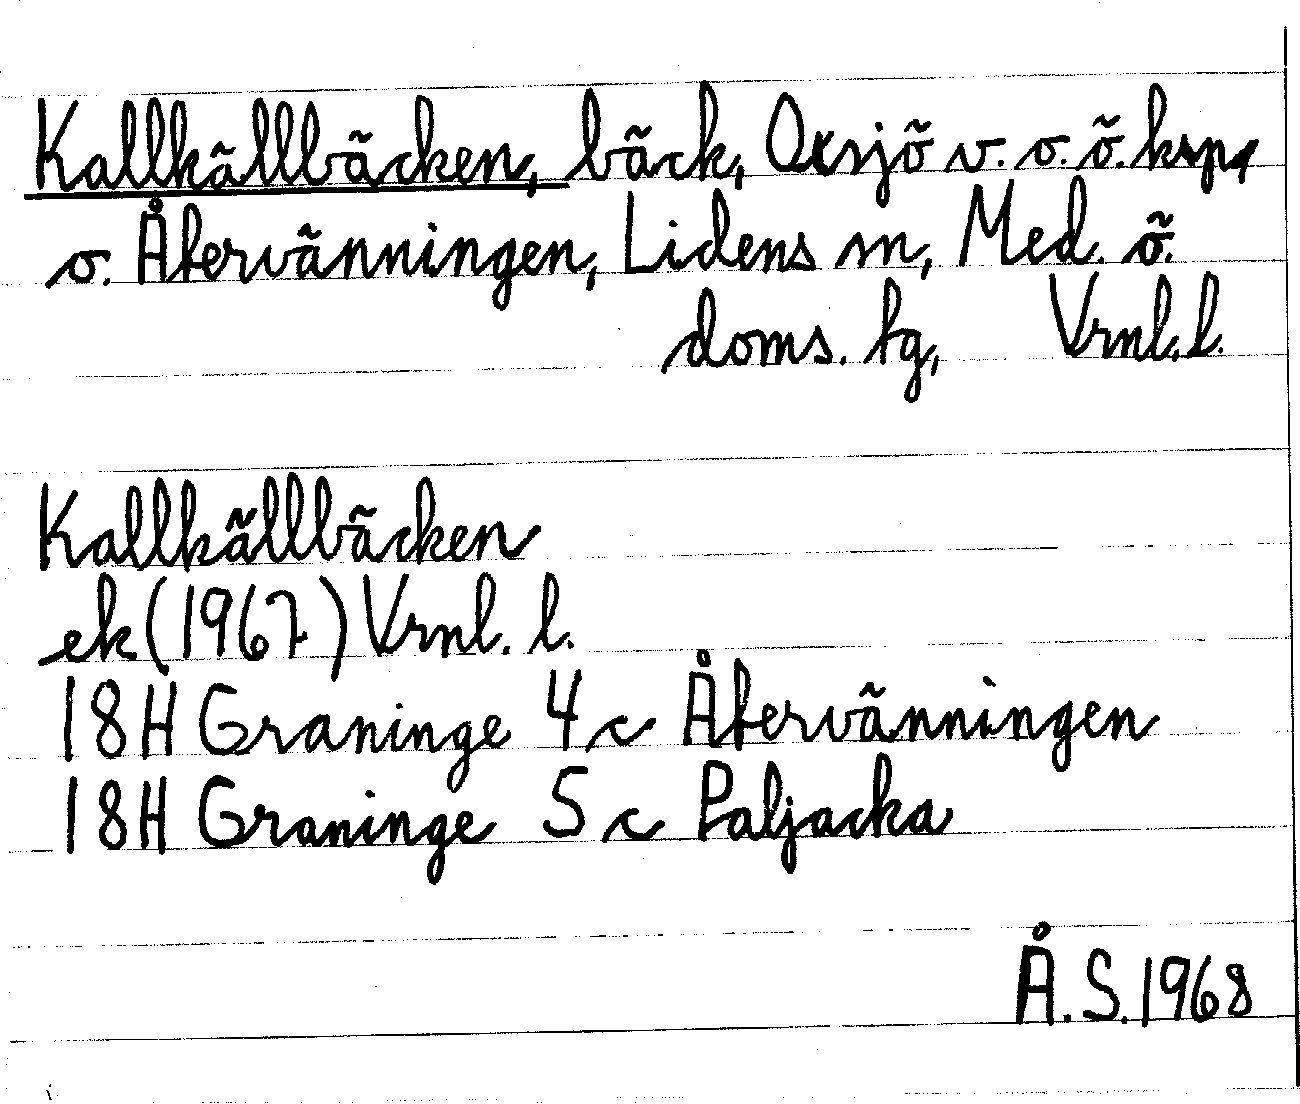 Kallkällbäcken, bäck, Oxsjö v. o. ö. ksp,
o. Återvänningen, Lidens sn, Med. ö.
doms. tg, Vrnl. l.
Kallkällbäcken
ek (1967) Vrnl. l.
18H Graninge 4c Återvänningen
18H Graninge 5c Paljacka
Å.S. 1968